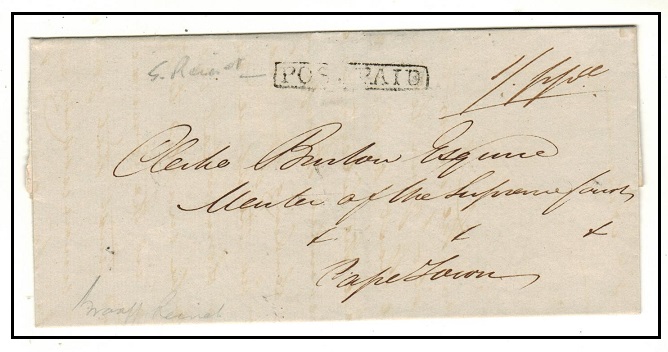 G. Reinet
POST PAID
Clerke Burton Esquire
Master of the Supreme Court
Cape Town
Graaff Reinet